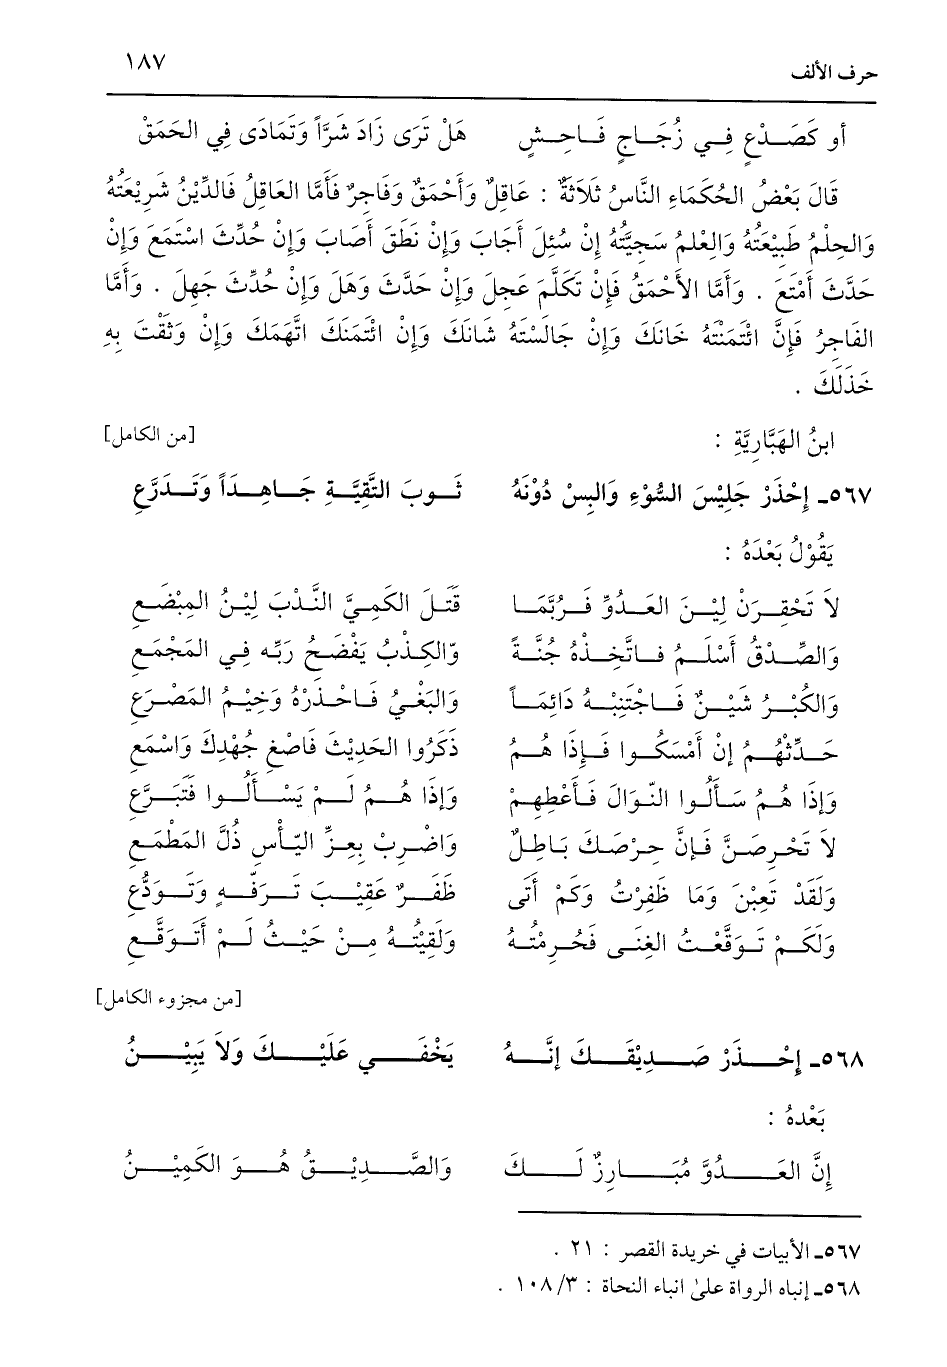 حرف الألف ١٨٧
أو كَصَدْعٍ فِي زُجَاجٍ فَاحِشٍ هَلْ تَرَى زَادَ شَرَّاً وَتَمَادَى فِي الحَمَقْ
قَالَ بَعْضُ الحُكَمَاءِ النَّاسُ ثَلَاثَةٌ : عَاقِلٌ وَأَحْمَقٌ وَفَاجِرٌ فَأَمَّا العَاقِلُ فَالدِّيْنُ شَرِيْعَتُهُ
وَالحِلْمُ طَبِيْعَتُهُ وَالعِلْمُ سَجِيَّتُهُ إِنْ سُئِلَ أَجَابَ وَإِنْ نَطَقَ أَصَابَ وَإِنْ حُدِّثَ اسْتَمَعَ وَإِنْ
حَدَّثَ أَمْتَعَ . وَأَمَّا الأَحْمَقُ فَإِنْ تَكَلَّمَ عَجِلَ وَإِنْ حَدَّثَ وَهَلَ وَإِنْ حُدِّثَ جَهِلَ . وَأَمَّا
الفَاجِرُ فَإِنَّ ائْتَمَنْتَهُ خَانَكَ وَإِنْ جَالَسْتَهُ شَانَكَ وَإِنْ ائْتَمَنَكَ اتَّهَمَكَ وَإِنْ وَثَقْتَ بِهِ
خَذَلَكَ .
ابنُ الهَبَّارِيَّةِ : [من الكامل]
٥٦٧ـ إِحْذَرْ جَلِيْسَ السُّوْءِ وَالبِسْ دُوْنَهُ ثَوبَ التَّقِيَّةِ جَاهِدَاً وَتَدَرَّعِ
يَقُوْلُ بَعْدَهُ :
لَا تَحْقِرَنْ لِيْنَ العَدُوِّ فَرُبَّمَا قَتَلَ الكَمِيَّ النَّدْبَ لِيْنُ المِبْضَعِ
وَالصِّدْقُ أَسْلَمُ فَاتَّخِذْهُ جُنَّةً وَالكِذْبُ يَفْضَحُ رَبَّه فِي المَجْمَعِ
وَالكُبْرُ شَيْنٌ فَاجْتَنِبْهُ دَائِمَاً وَالبَغْيُ فَاحْذَرْهُ وَخِيْمُ المَصْرَعِ
حَدِّثْهُمُ إِنْ أَمْسَكُوا فَإِذَا هُمُ ذَكَرُوا الحَدِيْثَ فَاصْغِ جُهْدِكَ وَاسْمَعِ
وَإِذَا هُمُ سَأَلُوا النَّوَالَ فَأَعْطِهِمْ وَإِذَا هُمُ لَمْ يَسْأَلُوا فَتَبَرَّعِ
لَا تَحْرِصَنَّ فَإِنَّ حِرْصَكَ بَاطِلٌ وَاضْرِبْ بِعِزِّ اليَأْسِ ذُلَّ المَطْمَعِ
وَلَقَدْ تَعِبْنَ وَمَا ظَفِرْتُ وَكَمْ أَتَى ظَفَرٌ عَقِيْبَ تَرَفُّهٍ وَتَوَدُّعِ
وَلَكَمْ تَوَقَّعْتُ الغِنَى فَحُرِمْتُهُ وَلَقِيْتُهُ مِنْ حَيْثُ لَمْ أَتَوَقَّعِ
[من مجزوء الكامل]
٥٦٨ـ إِحْذَرْ صَدِيْقَكَ إِنَّهُ يَخْفَى عَلَيْكَ وَلَا يَبِيْنُ
بَعْدهُ :
إِنَّ العَدُوَّ مُبَارِزٌ لَكَ وَالصَّدِيْقُ هُوَ الكَمِيْنُ
٥٦٧ـ الأبيات في خريدة القصر : ٢١ .
٥٦٨ـ إنباه الرواة على انباء النحاة : ١٠٨/٣ .